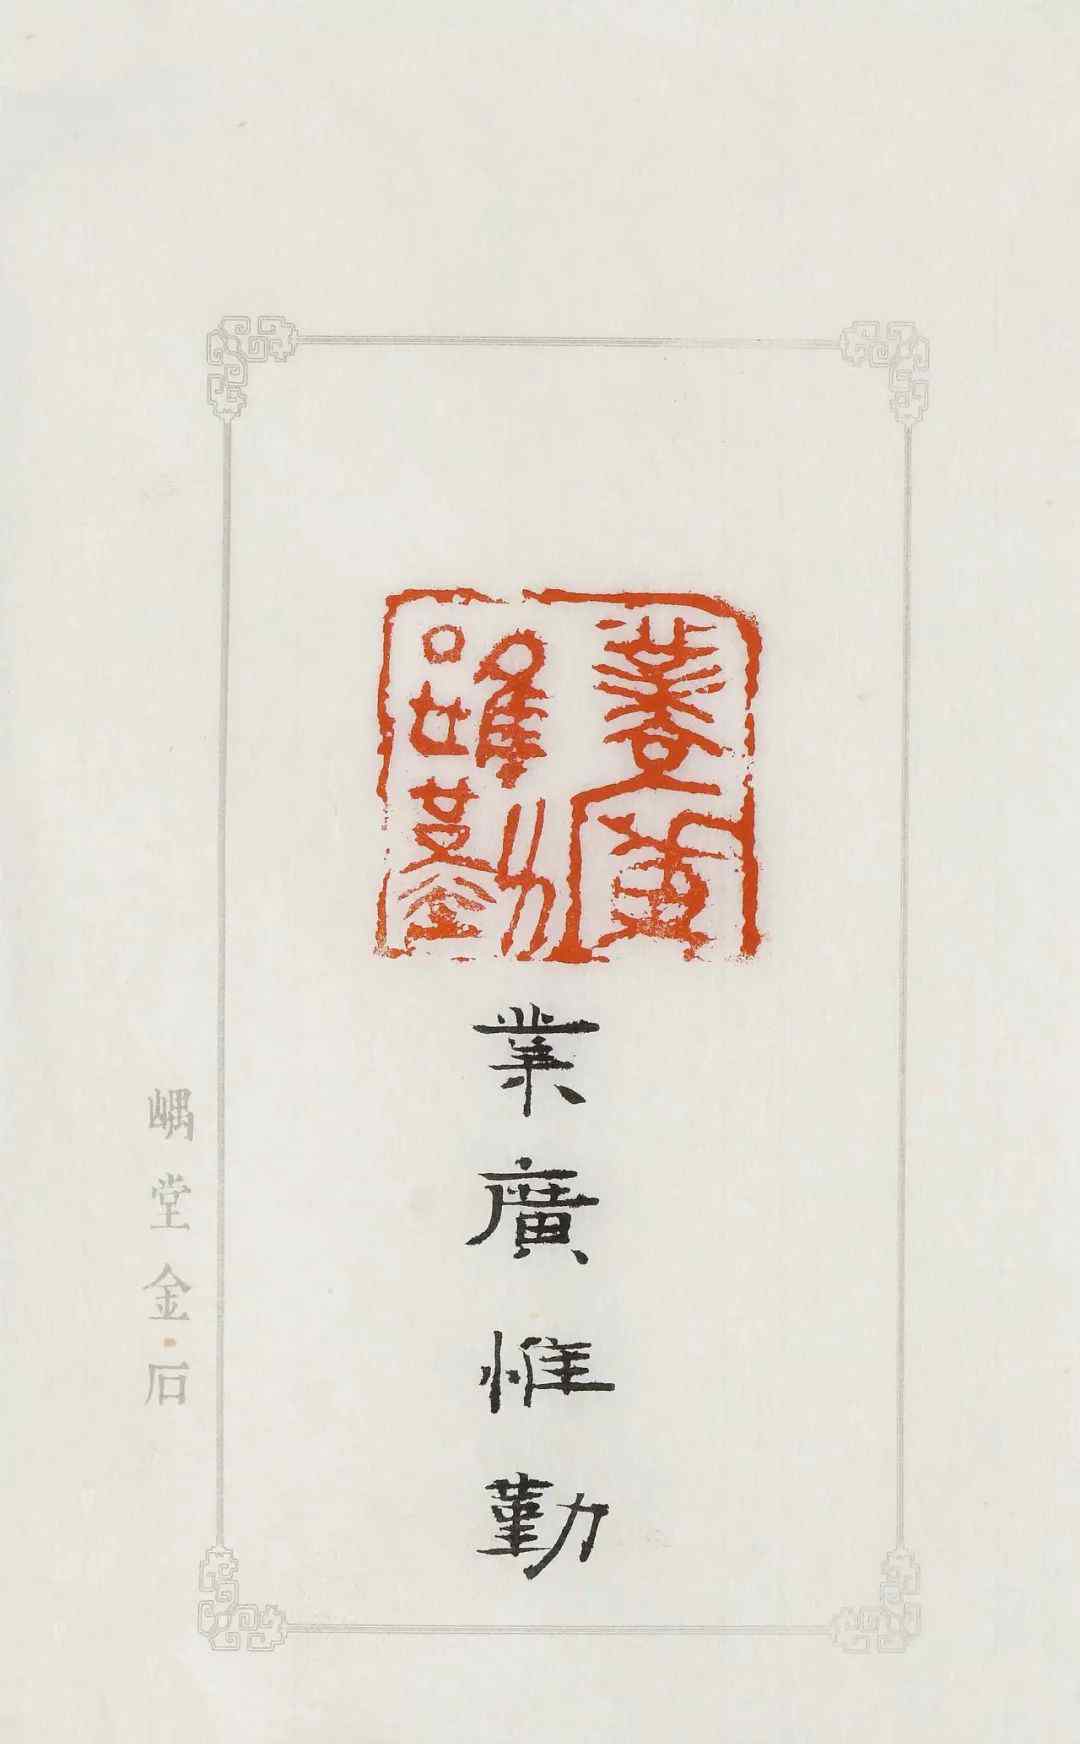 業廣
惟勤
業廣惟勤
嵎堂金石